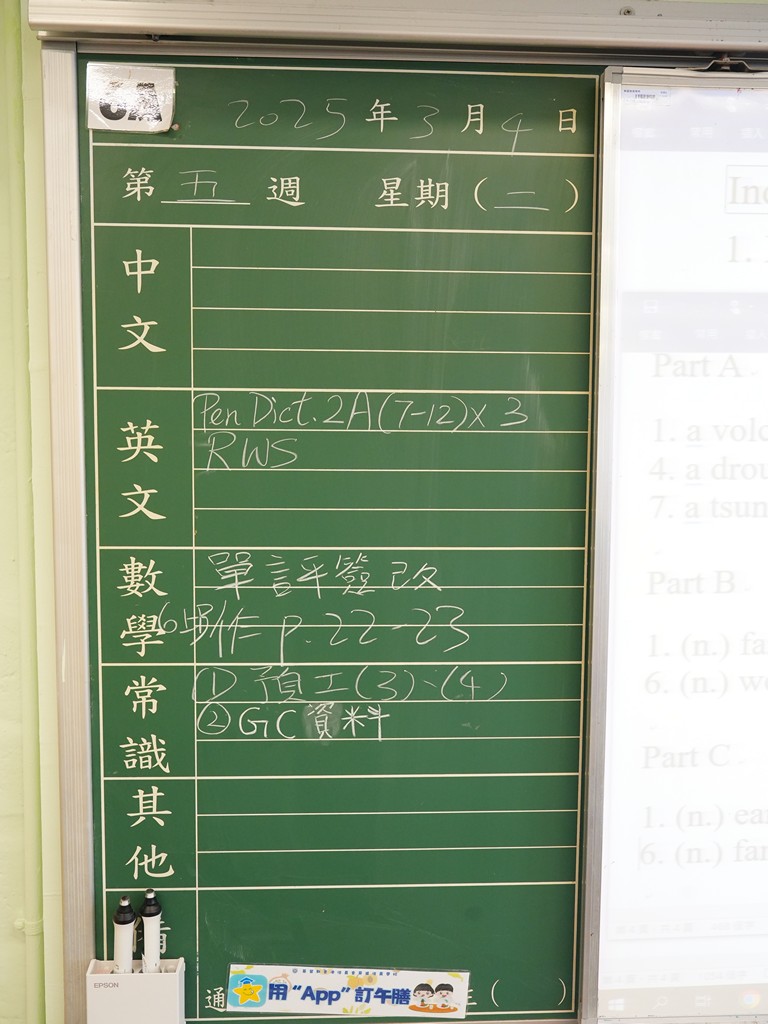 6A
2025年3月4日
第五週 星期（二）
中文
英文
Pen Dict. 2A(7-12)x 3
RWS
數學
單評簽改
6上作 p.22-23
常識
① 預工(3)、(4)
② GC資料
其他
備
通
（ ）
用“App”訂午膳
EPSON
Part A
1. a volc
4. a drou
7. a tsun
Part B
1. (n.) fa
6. (n.) we
Part C
1. (n.) ea
6. (n.) far